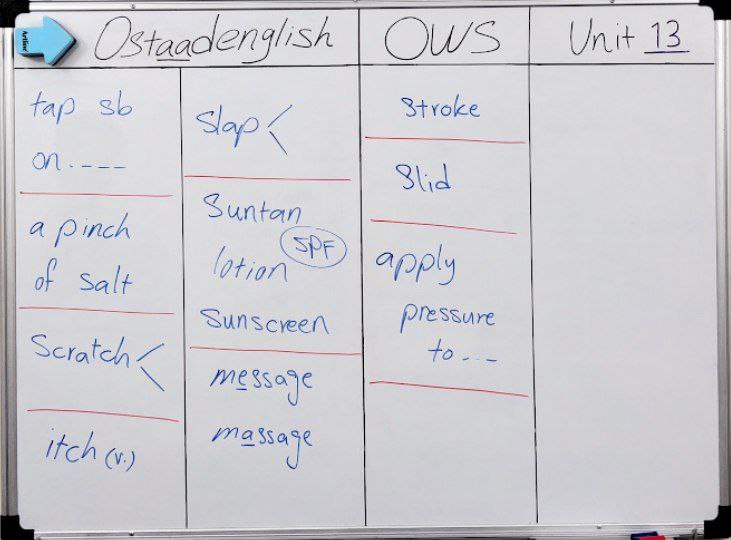 Artline
Ostaadenglish
OWS
Unit 13
tap sb
on.----
a pinch
of salt
Scratch
itch (v.)
Slap
Suntan
lotion
SPF
Sunscreen
message
massage
Stroke
Slid
apply
pressure
to...-